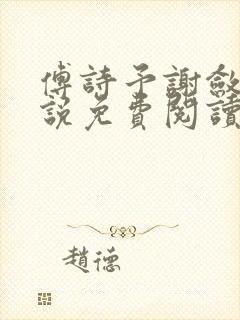 傅詩予謝斂
説免費閱讀
趙德